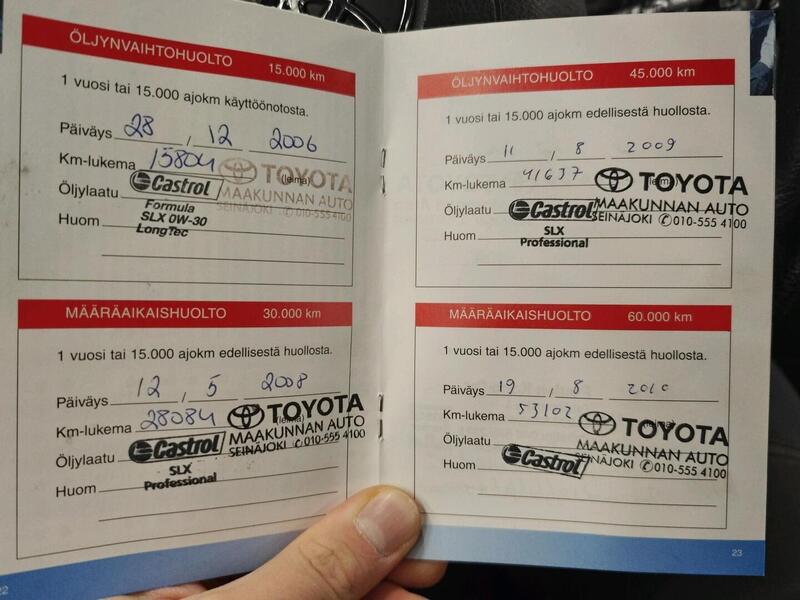 ÖLJYNVAIHTOHUOLTO 15.000 km
1 vuosi tai 15.000 ajokm käyttöönotosta.
Päiväys 28 / 12 2006
Km-lukema 15804 (leima)
TOYOTA
MAAKUNNAN AUTO
SEINÄJOKI ✆ 010-555 4100
Öljylaatu Castrol
Formula
SLX 0W-30
LongTec
Huom
MÄÄRÄAIKAISHUOLTO 30.000 km
1 vuosi tai 15.000 ajokm edellisestä huollosta.
Päiväys 12 / 5 2008
Km-lukema 28084 (leima)
TOYOTA
MAAKUNNAN AUTO
SEINÄJOKI ✆ 010-555 4100
Öljylaatu Castrol
SLX
Professional
Huom
22
ÖLJYNVAIHTOHUOLTO 45.000 km
1 vuosi tai 15.000 ajokm edellisestä huollosta.
Päiväys 11 / 8 2009
Km-lukema 41637 (leima)
TOYOTA
MAAKUNNAN AUTO
SEINÄJOKI ✆ 010-555 4100
Öljylaatu Castrol
SLX
Professional
Huom
MÄÄRÄAIKAISHUOLTO 60.000 km
1 vuosi tai 15.000 ajokm edellisestä huollosta.
Päiväys 19 / 8 2010
Km-lukema 53102 (leima)
TOYOTA
MAAKUNNAN AUTO
SEINÄJOKI ✆ 010-555 4100
Öljylaatu
Huom Castrol
23